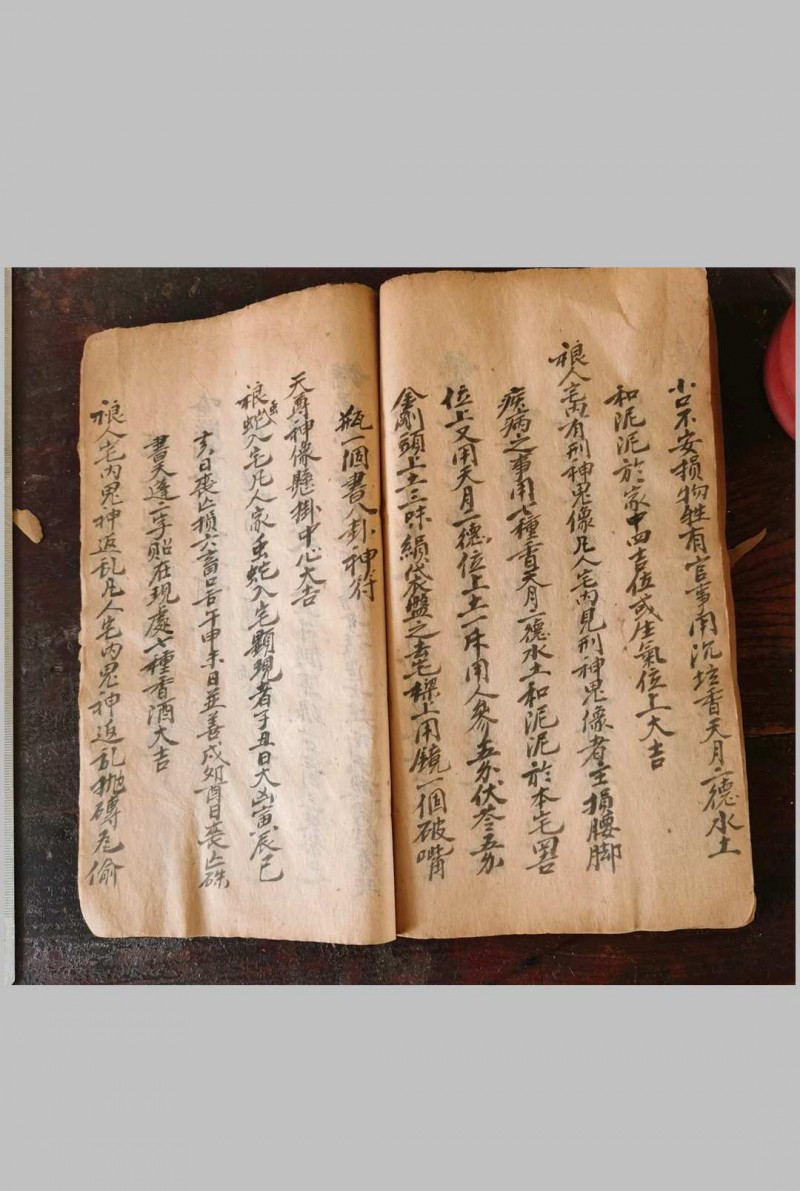 小口不安損物牲有官事用沉坛香天月二德水土
和泥泥於家中四吉位或生氣位上大吉
禳人宅內有刑神鬼像凡人宅內見刑神鬼像者主損腰脚
疾病之事用七種香天月二德水土和泥泥於本宅四吉
位上又用天月二德位上土一升用人參五分伏苓五分
金剛頭上土三味絹袋盛之去宅樑上用鏡一個破嘴
瓶一個書八卦神符
天尊神像懸掛中心大吉
禳虫蛇入宅凡人家虫蛇入宅顯現者子丑日大凶寅辰巳
亥日喪亡損六畜口舌午申未日並善戌卯酉日喪亡
書天蓬二字貼在現處七種香酒大吉
禳人宅內鬼神返乱凡人宅內鬼神返乱抛磚瓦偷